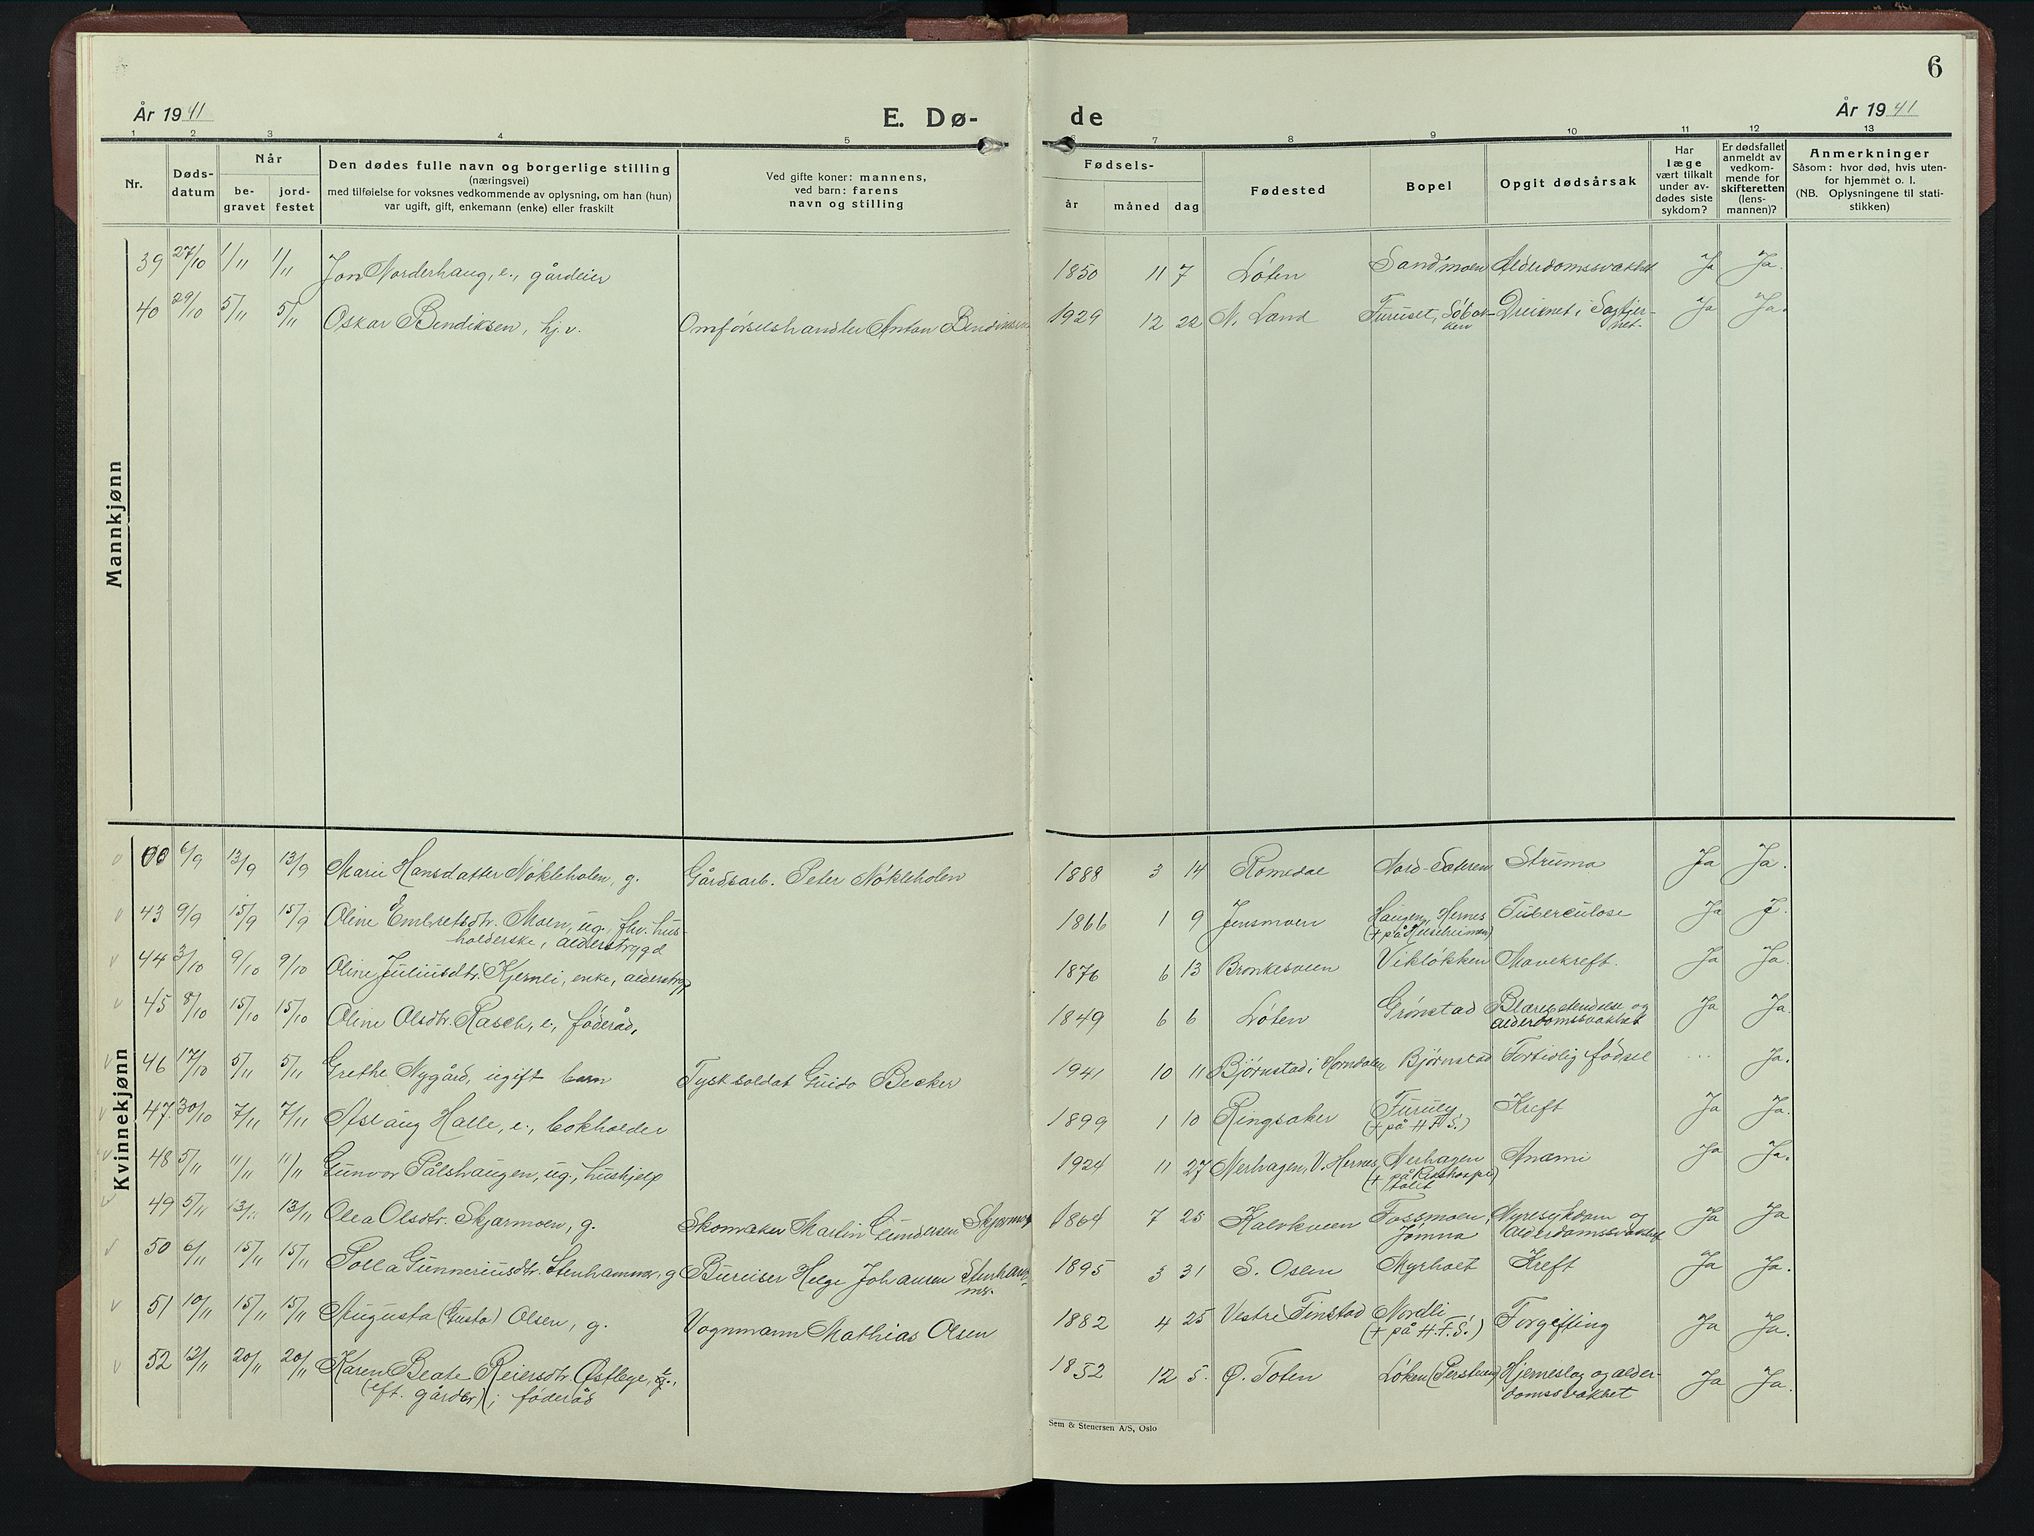 6
År 1941
E. Dø-
de
År 1941
1 2 3 4 5 6 7 8 9 10 11 12 13
Nr.
Døds-
datum
Når
be-
gravet
jord-
festet
Den dødes fulle navn og borgerlige stilling
(næringsvei)
med tilføielse for voksnes vedkommende av oplysning, om han (hun)
var ugift, gift, enkemann (enke) eller fraskilt
Ved gifte koner: mannens,
ved barn: farens
navn og stilling
Fødsels-
år måned dag
Fødested
Bopel
Opgit dødsårsak
Har
læge
vært tilkalt
under av-
dødes siste
sykdom?
Er dødsfallet
anmeldt av
vedkom-
mende for
skifteretten
(lens-
mannen)?
Anmerkninger
Såsom: hvor død, hvis uten-
for hjemmet o. l.
(NB. Oplysningene til stati-
stikken)
Mannkjønn
39 27/10 1/11 1/11 Jon Norderhaug, e., gårdeier 1850 11 7 Løten Sandmoen Alderdomssvakhet Ja Ja.
40 29/10 5/11 5/11 Oskar Bendiksen, hj.v. Omførselshandler Anton Bendiksen 1929 12 22 N. Land Furuset, Druknet i Sagtjer-
net. Ja Ja.
Kvinnekjønn
6/9 13/9 13/9 Marie Hansdatter Nøkleholen, g. Gårdsarb. Peter Nøkleholen 1888 3 14 Romedal Nord-Sæteren Struma Ja Ja.
43 9/9 15/9 15/9 Oline Embretsdtr. Moen, ug., fhv. hus-
holderske, alderstrygd 1866 1 9 Jensmoen Haugen, Hernes
(+ på ) Tuberculose Ja J.
44 3/10 9/10 9/10 Oline Juliusdtr. Kjernli, enke, alderstryg 1876 6 13 Bronkesveen Vikløkken Mavekreft. Ja Ja.
45 8/10 15/10 15/10 Oline Olsdtr. Rasch, e., føderåd, 1849 6 6 Løten Grønstad Blærebetendelse og
alderdomssvakhet Ja Ja.
46 17/10 5/11 5/11 Grethe Nygård, ugift barn Tysk soldat Guido Becker 1941 10 11 Bjørnstad i Horndalen Bjørnstad Fortidlig fødsel ... Ja.
47. 30/10 7/11 7/11 Aslaug Halle, e., bokholder 1899 1 10 Ringsaker Furuly,
(+ på H.F.S.) Kreft Ja Ja.
48 5/11 11/11 11/11 Gunvor Pålshaugen, ug., hushjelp 1924 11 27 Nerhagen, V. Hernes, Nerhagen
(+ på Rikshospi-
talet) Anæmi Ja Ja.
49 5/11 13/11 13/11 Olea Olsdtr. Skjærmoen, g. Skomaker Martin Gundersen Skjærmo 1864 7 25 Kalvkveen Fossmoen,
Jømna Nyresykdom og
alderdomssvakhet Ja Ja
50 6/11 15/11 15/11 Polla Gunneriusdtr. Stenhammer, g Bureiser Helge Johansen Stenham-
mer. 1895 3 31 S. Osen Myrholt Kreft Ja Ja.
51 10/11 15/11 15/11 Augusta (Gusta) Olsen, g. Vognmann Mathias Olsen 1882 4 25 Vestre Finstad Nordli
(+ på H.F.S.) Forgifting Ja Ja.
52 12/11 20/11 20/11 Karen Beate Reiersdtr. Østlege, e.,
(eft. gårdbr.) i føderåd 1852 12 5. Ø. Toten Løken Hjerneslag og alder-
domssvakhet Ja Ja.
Sem & Stenersen A/S, Oslo